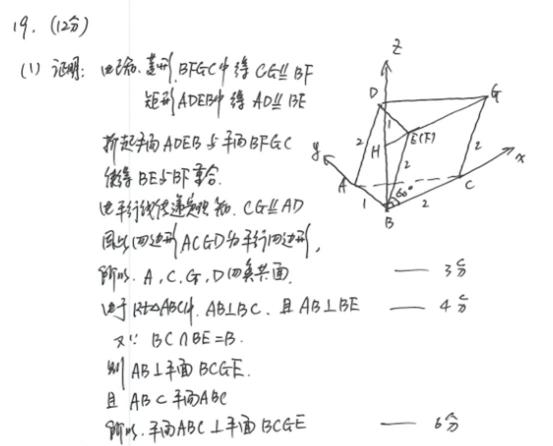 19. (12分)
(1) 证明: 由已知, 菱形 BFGC中得 CG∥BF
矩形 ADEB中得 AD∥BE
折起平面ADEB与平面BFGC
使得BE与BF重合.
由平行线传递定理知. CG∥AD
因此四边形ACGD为平行四边形,
所以. A, C, G, D四点共面. —— 3分
由于 Rt△ABC中, AB⊥BC, 且 AB⊥BE —— 4分
又∵ BC∩BE=B.
则 AB⊥平面 BCGE.
且 AB⊂平面ABC
所以. 平面ABC⊥平面BCGE —— 6分
z
D
G
1
E(F)
2
H
2
2
y
x
A
C
60°
1
2
B